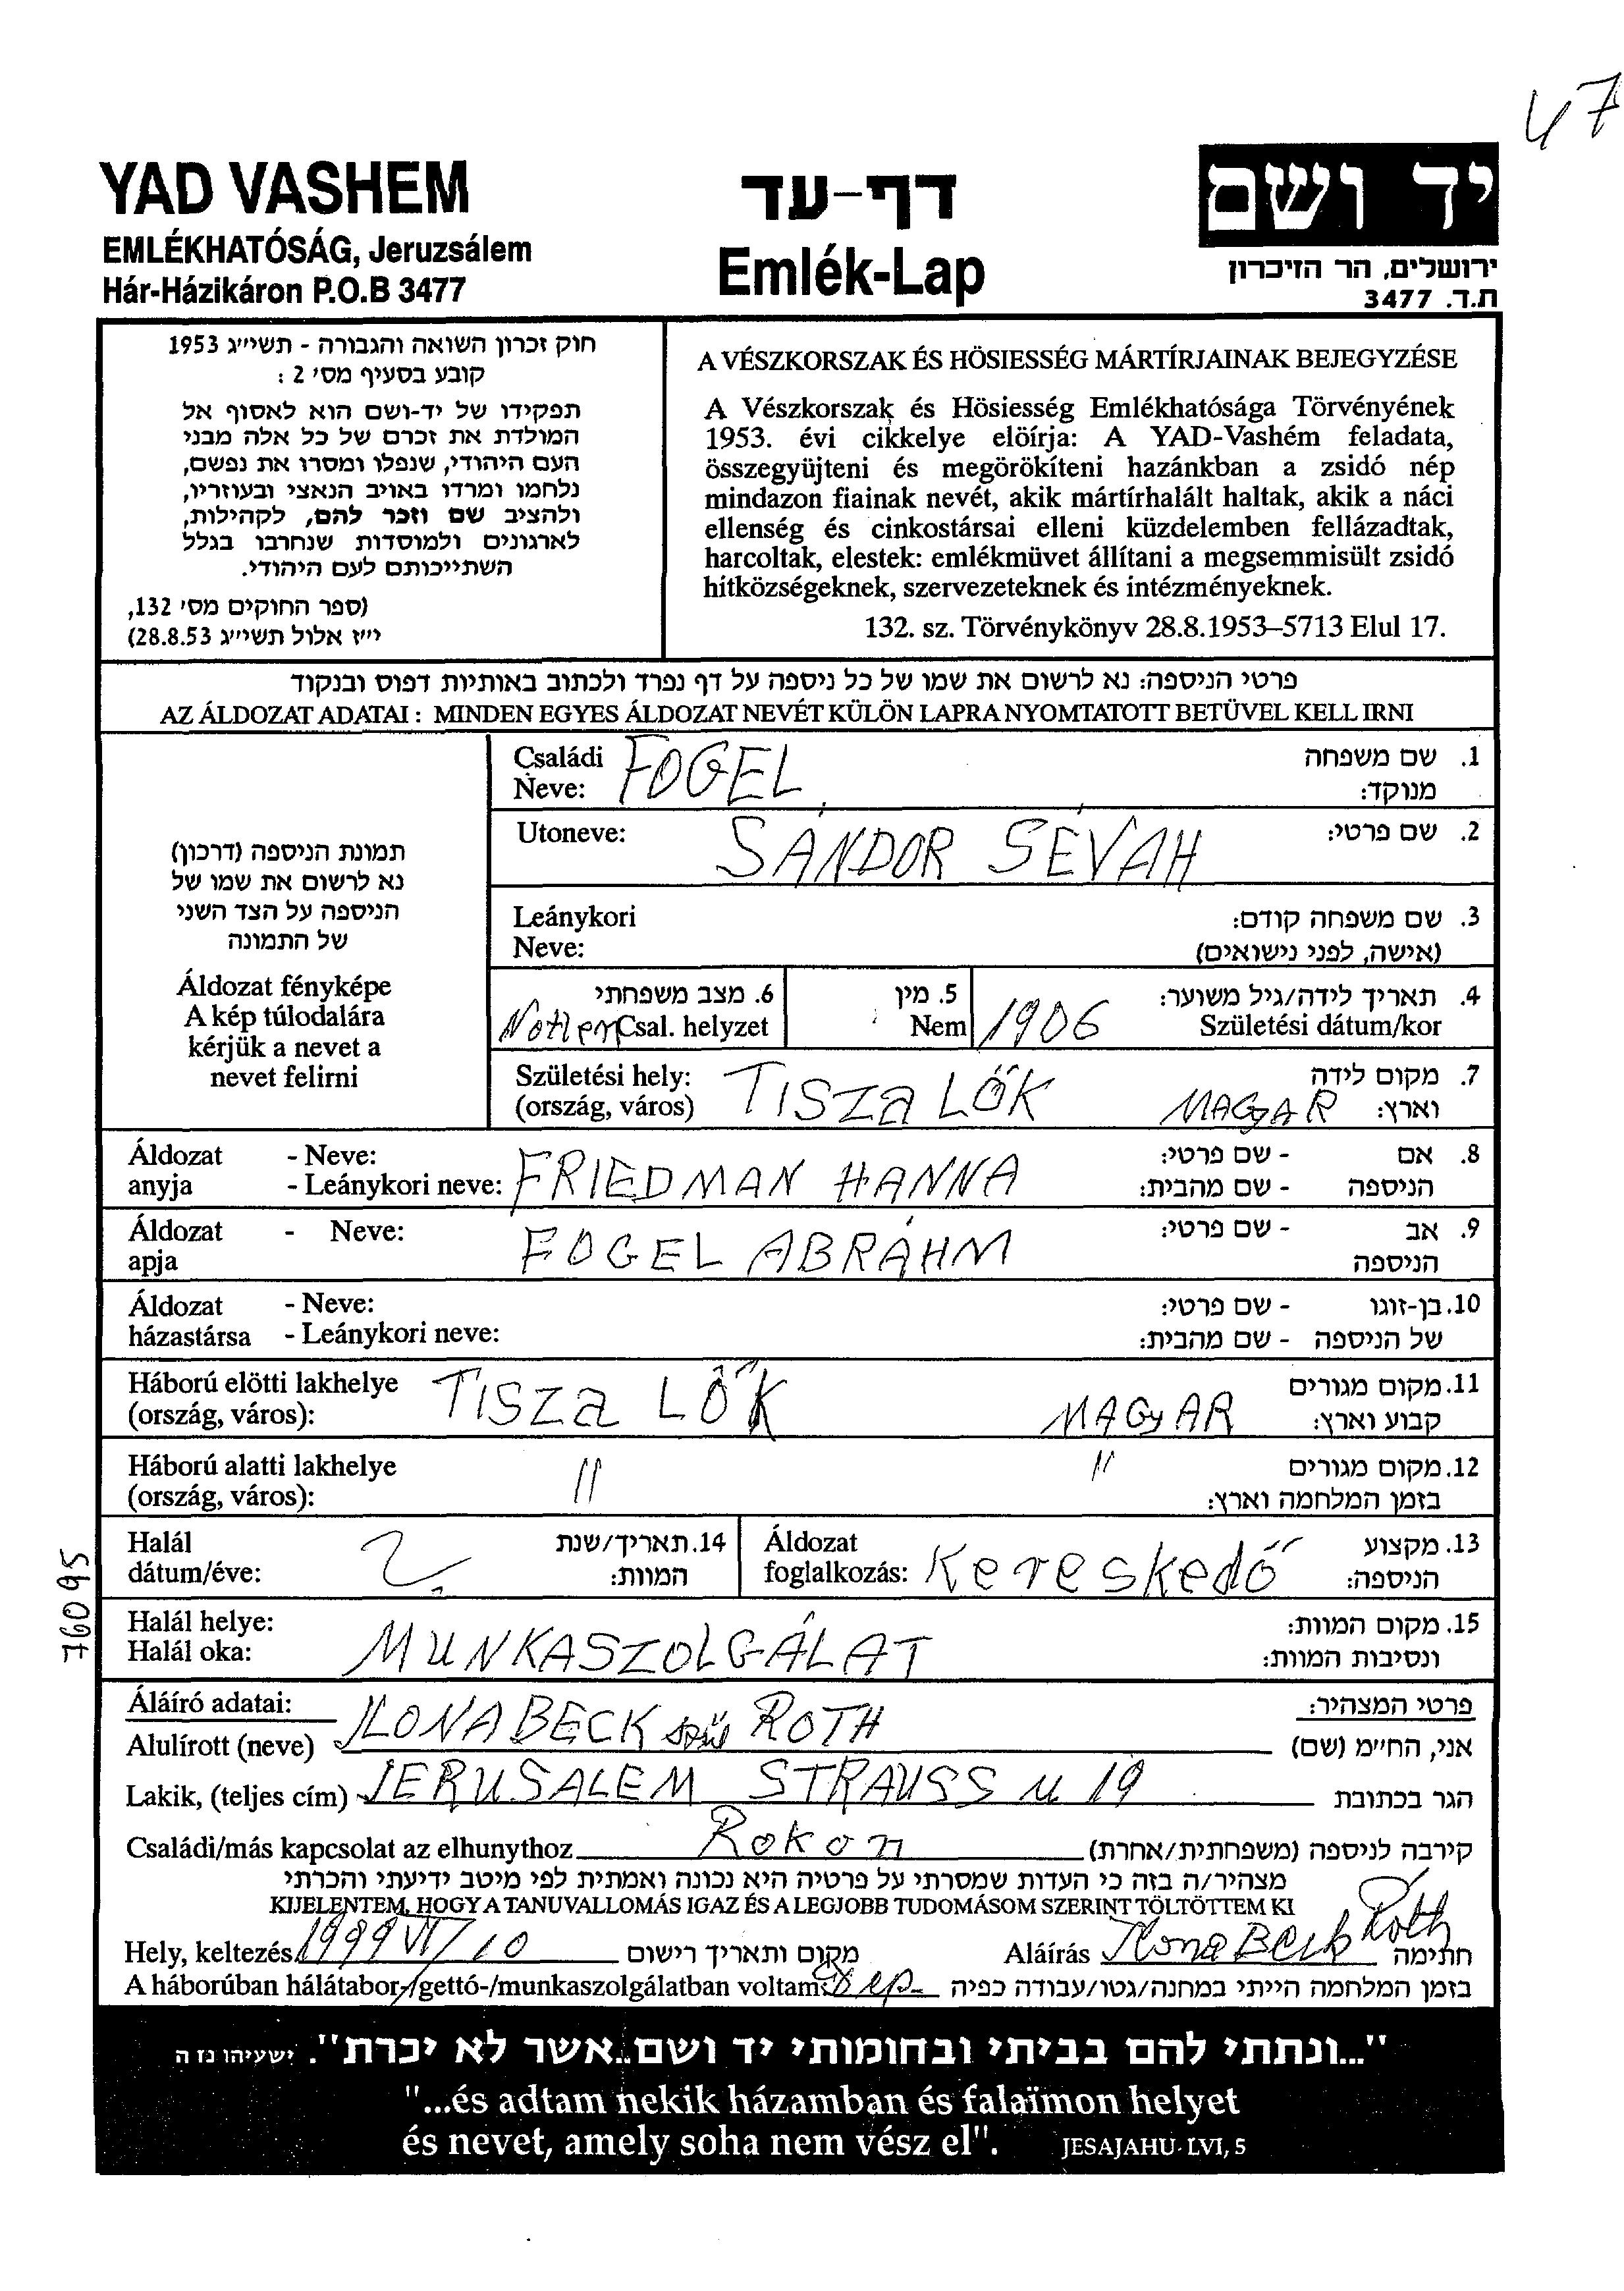 47
YAD VASHEM
EMLÉKHATÓSÁG, Jeruzsálem
Hár-Házikáron P.O.B 3477
דף-עד
Emlék-Lap
יד ושם
ירושלים, הר הזיכרון
ת.ד. 3477
חוק זכרון השואה והגבורה - תשי״ג 1953
קובע בסעיף מס׳ 2 :
תפקידו של יד-ושם הוא לאסוף אל
המולדת את זכרם של כל אלה מבני
העם היהודי, שנפלו ומסרו את נפשם,
נלחמו ומרדו באויב הנאצי ובעוזריו,
ולהציב שם וזכר להם, לקהילות,
לארגונים ולמוסדות שנחרבו בגלל
השתייכותם לעם היהודי.
(ספר החוקים מס׳ 132,
י״ז אלול תשי״ג 28.8.53)
A VÉSZKORSZAK ÉS HÖSIESSÉG MÁRTÍRJAINAK BEJEGYZÉSE
A Vészkorszak és Hösiesség Emlékhatósága Törvényének
1953. évi cikkelye elöírja: A YAD-Vashém feladata,
összegyüjteni és megörökíteni hazánkban a zsidó nép
mindazon fiainak nevét, akik mártírhalált haltak, akik a náci
ellenség és cinkostársai elleni küzdelemben fellázadtak,
harcoltak, elestek: emlékmüvet állítani a megsemmisült zsidó
hitközségeknek, szervezeteknek és intézményeknek.
132. sz. Törvénykönyv 28.8.1953–5713 Elul 17.
פרטי הניספה: נא לרשום את שמו של כל ניספה על דף נפרד ולכתוב באותיות דפוס ובנקוד
AZ ÁLDOZAT ADATAI : MINDEN EGYES ÁLDOZAT NEVÉT KÜLÖN LAPRA NYOMTATOTT BETÜVEL KELL IRNI
תמונת הניספה (דרכון)
נא לרשום את שמו של
הניספה על הצד השני
של התמונה
Áldozat fényképe
A kép túlodalára
kérjük a nevet a
nevet felirni
Családi Neve: FOGEL 1. שם משפחה מנוקד:
Utoneve: SÁNDOR SÉVAH 2. שם פרטי:
Leánykori Neve: 3. שם משפחה קודם: (אישה, לפני נישואים)
Notlen Csal. helyzet 6. מצב משפחתי
Nem 5. מין
1906 Születési dátum/kor 4. תאריך לידה/גיל משוער:
Születési hely: (ország, város) TISZa LŐK MAGYAR 7. מקום לידה וארץ:
Áldozat anyja - Neve: - Leánykori neve: FRIEDMAN HANNA 8. אם הניספה - שם פרטי: - שם מהבית:
Áldozat apja - Neve: FOGEL ABRÁHM 9. אב הניספה - שם פרטי:
Áldozat házastársa - Neve: - Leánykori neve: 10. בן-זוגו של הניספה - שם פרטי: - שם מהבית:
Háború elötti lakhelye (ország, város): TISZa LŐK MAGyAR 11. מקום מגורים קבוע וארץ:
Háború alatti lakhelye (ország, város): 〃 〃 12. מקום מגורים בזמן המלחמה וארץ:
Halál dátum/éve: ? 14. תאריך/שנת המוות:
Áldozat foglalkozás: Kereskedő 13. מקצוע הניספה:
Halál helye: Halál oka: MUNKASZOLGÁLAT 15. מקום המוות: ונסיבות המוות:
76095
Áláíró adatai: פרטי המצהיר:
Alulírott (neve) ILONA BECK szül ROTH אני, הח״מ (שם)
Lakik, (teljes cím) JERUSALEM STRAUSS u 19 הגר בכתובת
Családi/más kapcsolat az elhunythoz Rokon קירבה לניספה (משפחתית/אחרת)
מצהיר/ה בזה כי העדות שמסרתי על פרטיה היא נכונה ואמתית לפי מיטב ידיעתי והכרתי
KIJELENTEM, HOGY A TANUVALLOMÁS IGAZ ÉS A LEGJOBB TUDOMÁSOM SZERINT TÖLTÖTTEM KI
Hely, keltezés 1999 VI/10 מקום ותאריך רישום Aláírás Ilona Beck Róth חתימה
A háborúban hálátabor-/gettó-/munkaszolgálatban voltam: בזמן המלחמה הייתי במחנה/גטו/עבודה כפיה
"...ונתתי להם בביתי ובחומותי יד ושם...אשר לא יכרת". ישעיהו נז ה
"...és adtam nekik házamban és falaïmon helyet
és nevet, amely soha nem vész el". JESAJAHU- LVI, 5